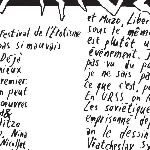 Festival de l'Erotisme
pas si mauvais
Déjà
mieux
premier.
on peut
oeuvres
d'
litza
, Nina
Nicollet,
et Muzo, Liber
sous le même
est plutôt u
évènement. J
pas vu du pe
je ne sais pa
ce que c'est, p
En URSS on n
Les soviétique
emprisonné de
an le dessin
Viatcheslav Sy